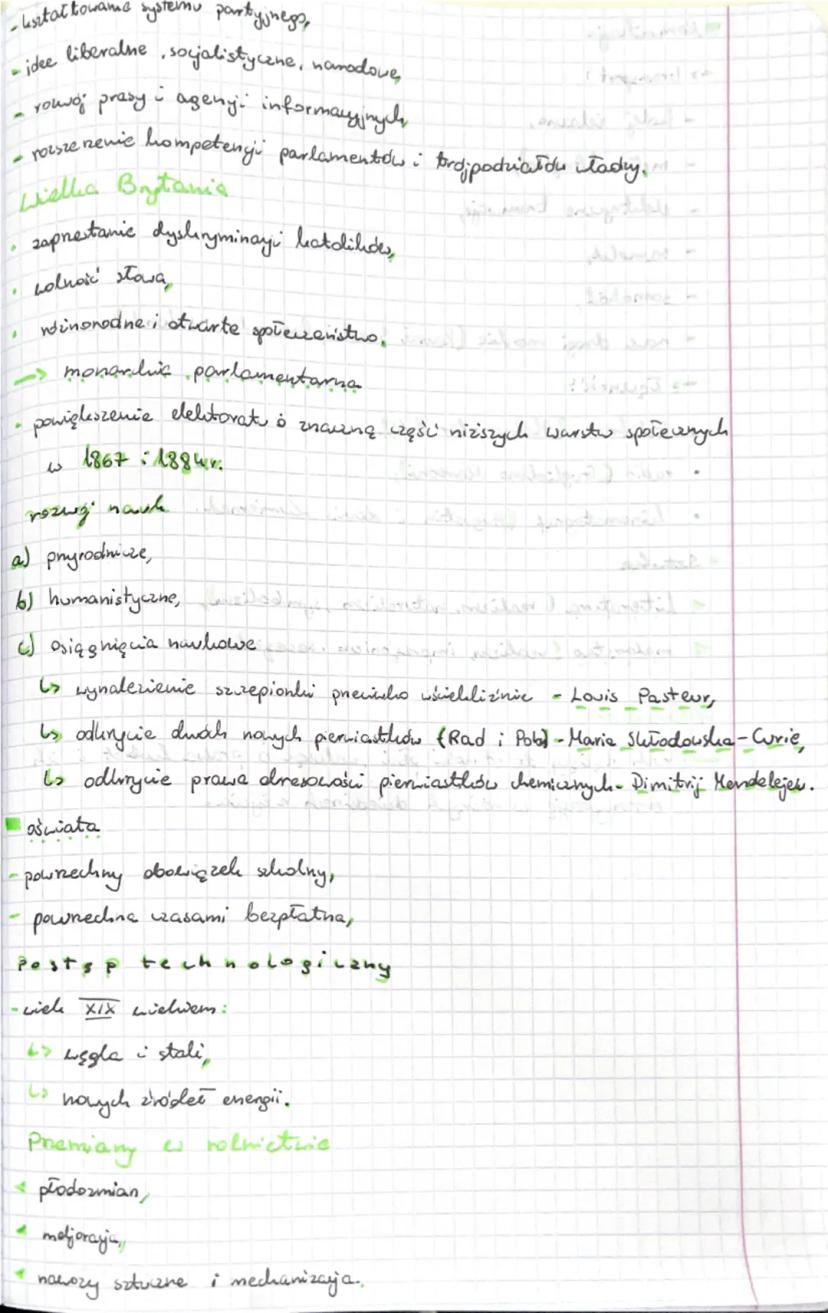 - kształtowanie systemu partyjnego,
- idee liberalne, socjalistyczne, narodowe,
- rozwój prasy i agencji informacyjnych,
- rozszerzenie kompetencji parlamentów i trójpodziałdu władzy.
Wielka Brytania
• zaprzestanie dyskryminacji katolików,
• wolność słowa,
• różnorodne i otwarte społeczeństwo.
→ monarchia parlamentarna
• powiększenie elektoratu o znaczną część niższych warstw społecznych
w 1867 i 1884r.
rozwój nauk
a) przyrodnicze,
b) humanistyczne,
c) osiągnięcia naukowe
↳ wynalezienie szczepionki przeciwko wściekliźnie - Louis Pasteur,
↳ odkrycie dwóch nowych pierwiastków (Rad i Polon) - Maria Skłodowska-Curie,
↳ odkrycie prawa okresowości pierwiastków chemicznych - Dimitrij Mendelejew.
oświata
- powszechny obowiązek szkolny,
- powszechna czasami bezpłatna,
Postęp technologiczny
- wiek XIX wiekiem:
↳ węgla i stali,
↳ nowych źródeł energii.
Przemiany w rolnictwie
◂ płodozmian,
◂ meljoracja,
◂ nawozy sztuczne i mechanizacja.